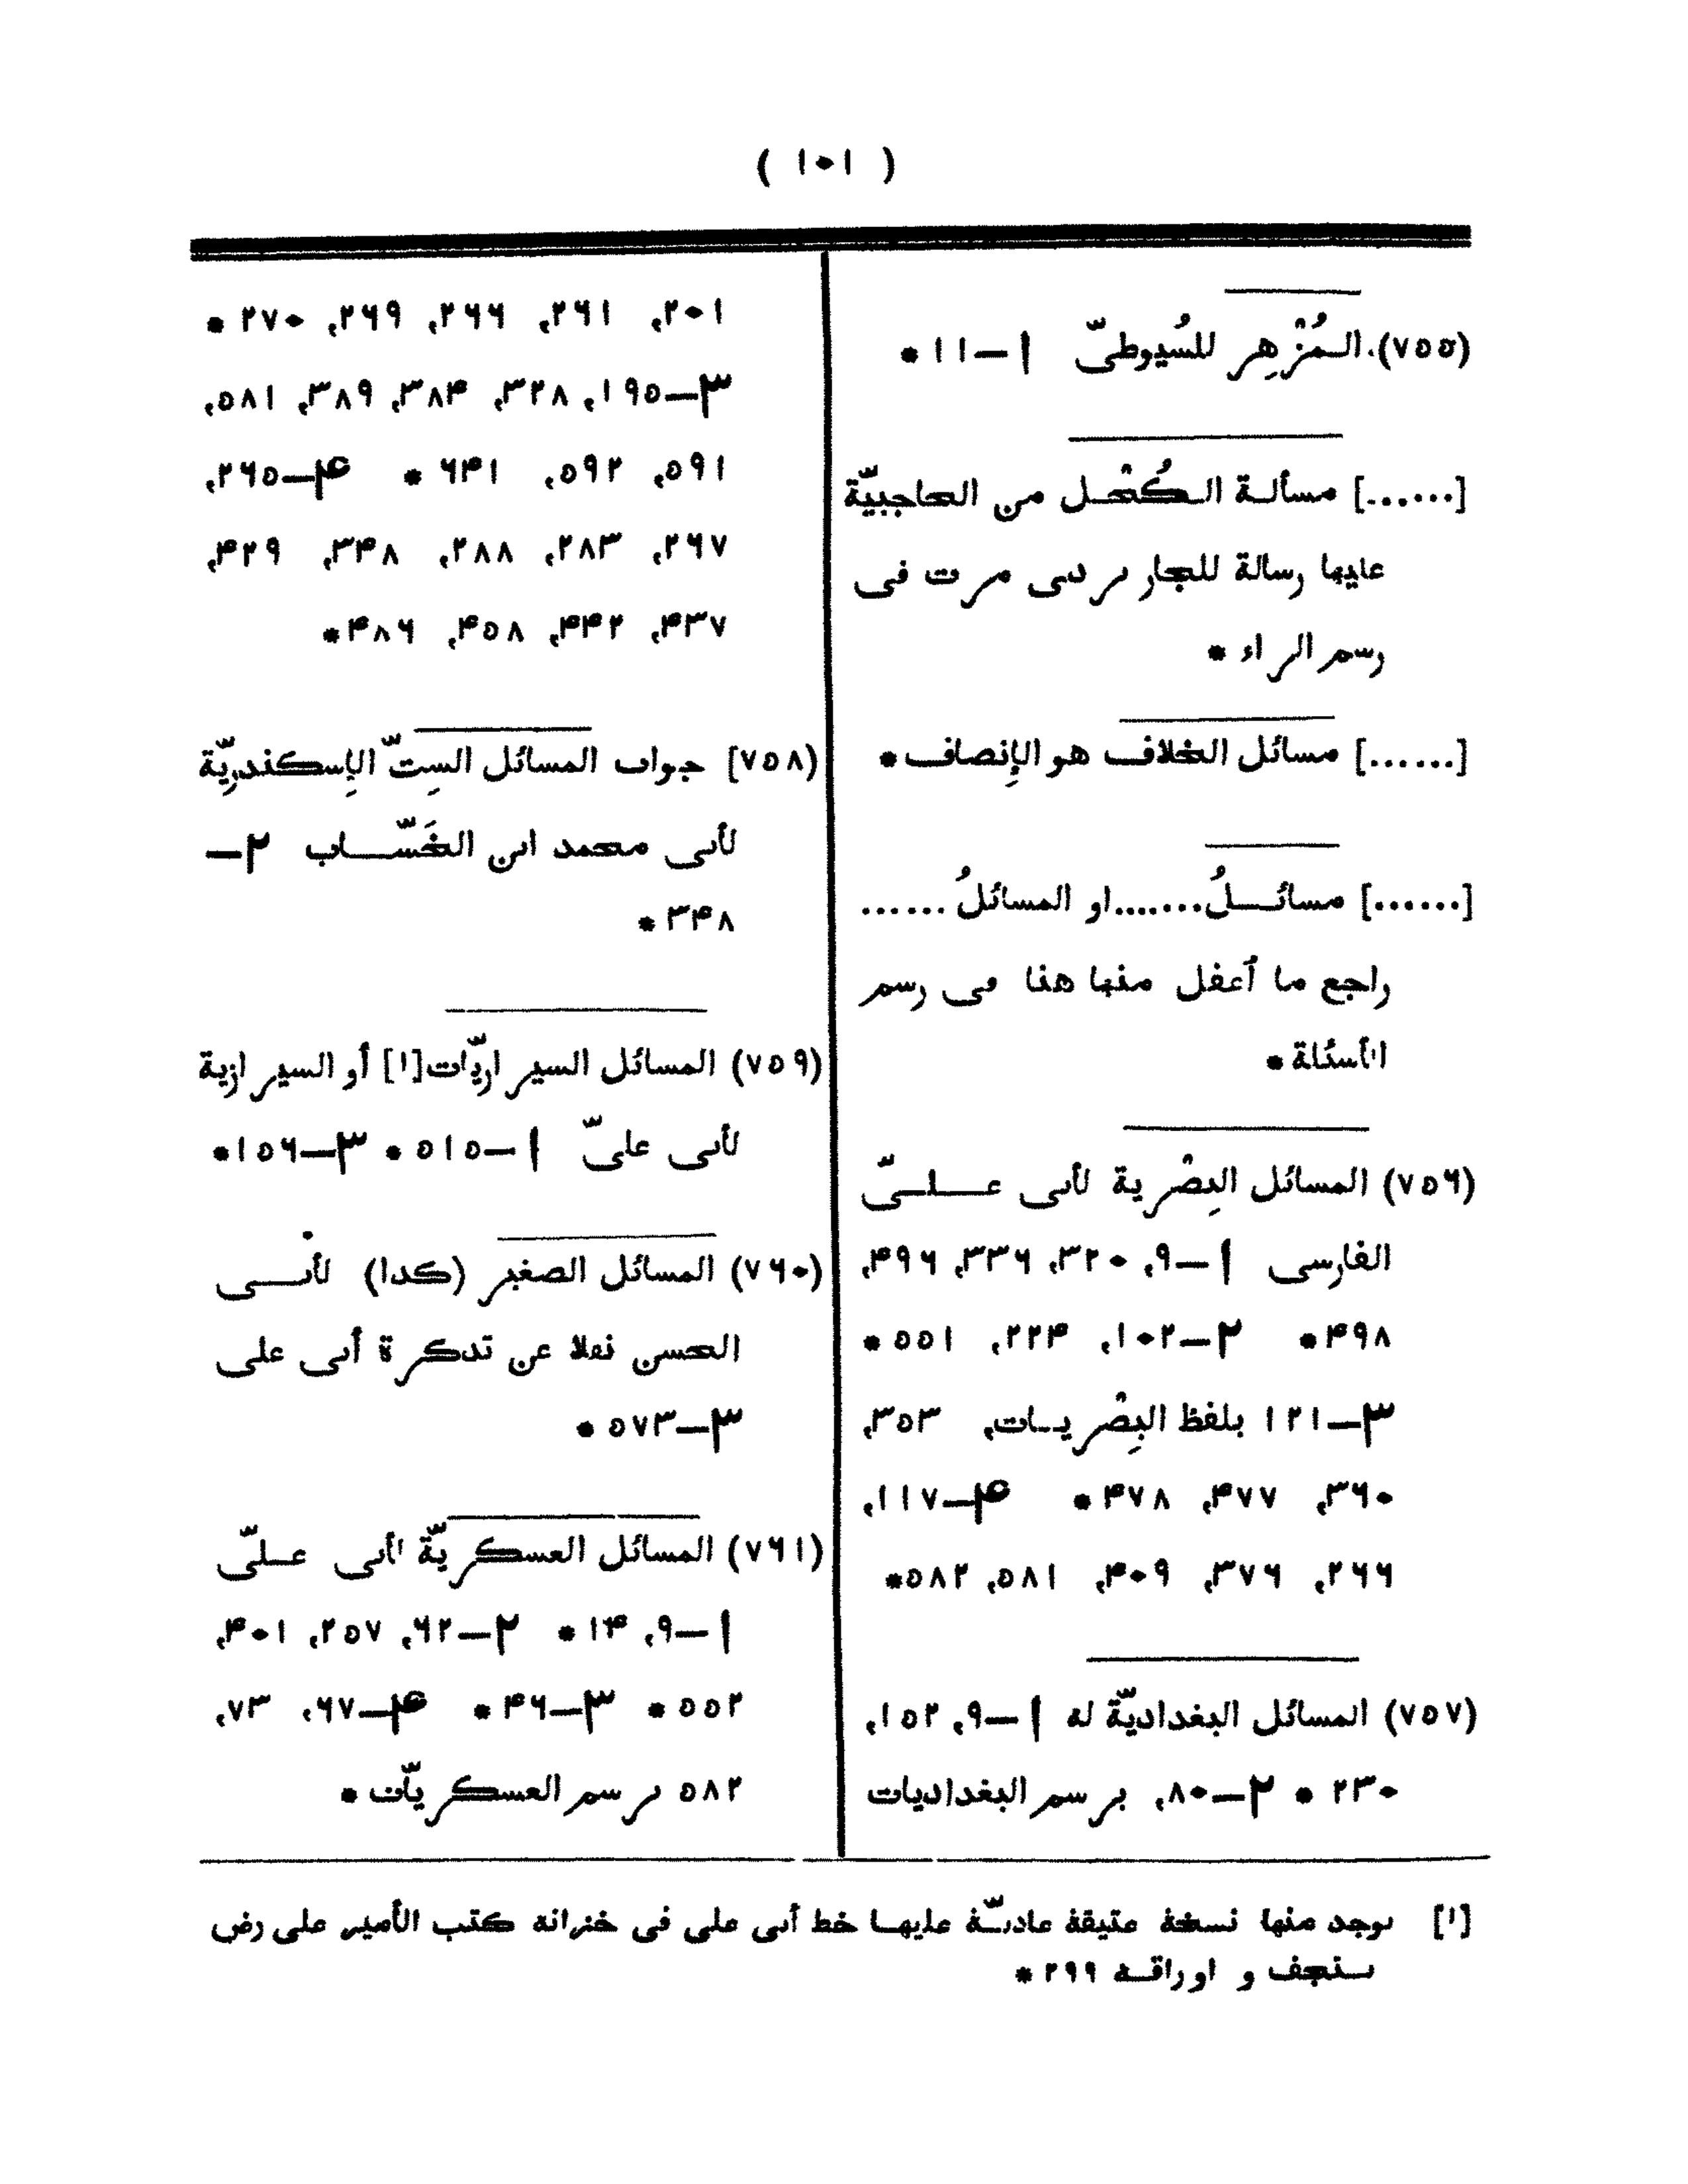 ( ١٠١ )
(٧٥٥) المُزْهِر للسُيوطىّ ١—١١ *
[......] مسألة الكُحْل من الحاجبيّة
عليها رسالة مرت فى
رسم الراء *
[......] مسائل الخلاف هو الإنصاف *
[......] مسائلُ....... او المسائلُ ......
راجع ما أغفل منها هنا فى رسم
الأسئلة *
(٧٥٦) المسائل البِصْرية لأبى علىّ
الفارسى ١—٩, ٣٢٠, ٣٣٦, ٤٩٦,
٤٩٨* ٢—١٠٢, ٢٢٤, ٥٥١ *
٣—١٢١ بلفظ البِصْريات, ٣٥٣,
٣٦٠, ٤٧٧, ٤٧٨ * ٤—١١٧,
٢٦٦, ٣٧٦, ٤٠٩, ٥٨١, ٥٨٢*
(٧٥٧) المسائل البغداديّة له ١—٩, ١٥٢,
٢٣٠ * ٢—٨٠, برسم البغداديات
٢٠١, ٢٦١, ٢٦٦, ٢٦٩, ٢٧٠ *
٣—١٩٥, ٣٢٨, ٣٨٤, ٣٨٩, ٥٨١,
٥٩١, ٥٩٢, ٦٤١ * ٤—٢٦٥,
٢٦٧, ٢٨٣, ٢٨٨, ٣٤٨, ٤٢٩,
٤٣٧, ٤٤٢, ٤٥٨, ٤٨٦*
(٧٥٨] جواب المسائل السِتّ الإسكندريّة
لأبى محمد ابن الخَشّاب ٢—
٣٤٨ *
(٧٥٩) المسائل الشيرازيّات[١] أو الشيرازية
لأبى علىّ ١—٥١٥ * ٣—١٥٦*
(٧٦٠) المسائل الصغير (كذا) لأبى
الحسن نقلا عن تذكرة أبى على
٣—٥٧٣ *
(٧٦١) المسائل العسكريّة لأبى علىّ
١—٩, ١٤ * ٢—٦٢, ٢٥٧, ٤٠١,
٥٥٢ * ٣—٤٦ * ٤—٦٧, ٧٣,
٥٨٢ برسم العسكريّات *
[١] يوجد منها نسخة عتيقة عليها خط أبى على فى خزانة كتب الأمير على رض
بنجف و اوراقه ٢٩٩ *